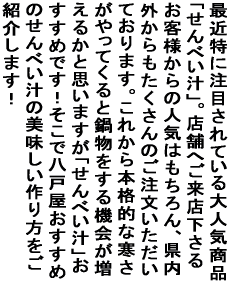 最近特に注目されている大人気商品
「せんべい汁」。店舗へご来店下さる
お客様からの人気はもちろん、県内
外からもたくさんのご注文いただい
ております。これから本格的な寒さ
がやってくると鍋物をする機会が増
えるかと思いますが「せんべい汁」お
すすめです！そこで八戸屋おすすめ
のせんべい汁の美味しい作り方をご
紹介します！